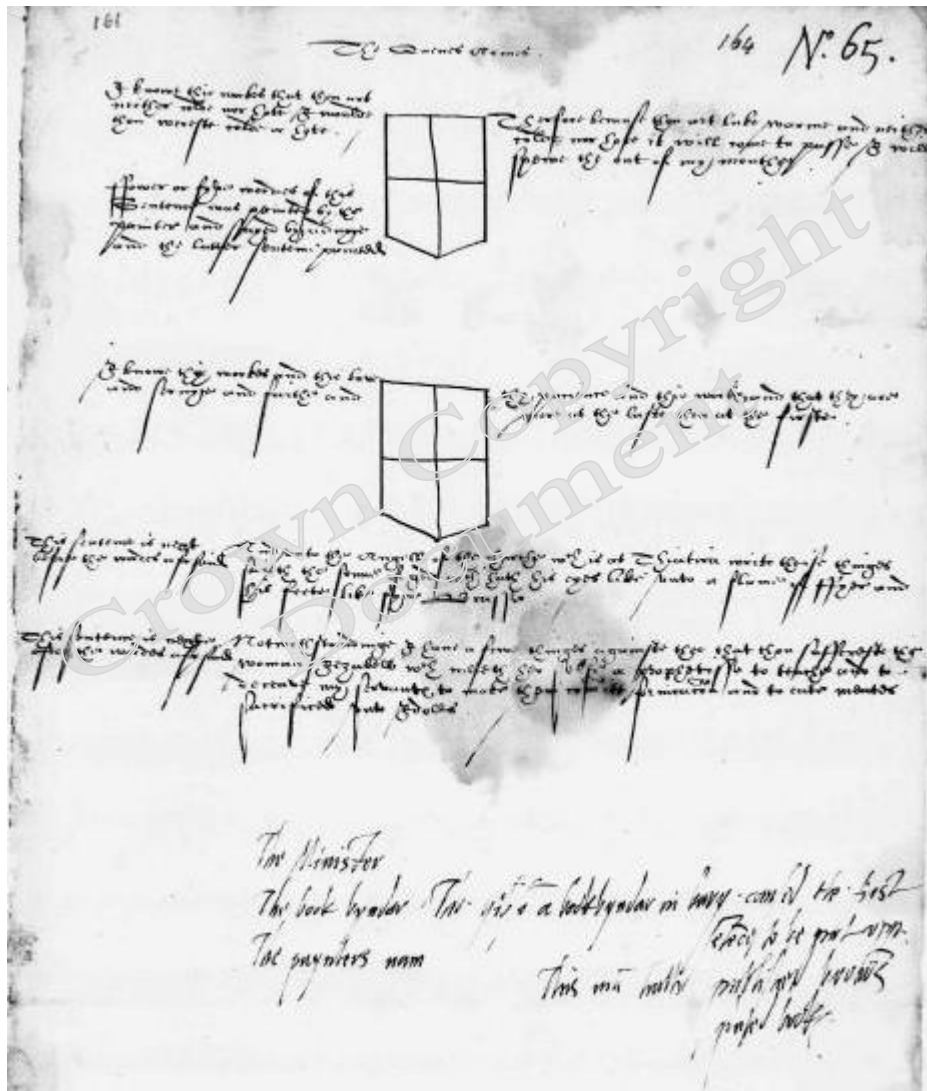 161
164 No. 65.
The Quenes Armes.
I knowe thie workes that thou art
neither colde nor hote I wolde
thou wereste colde or hote.
Therfore because thou art luke warme and neither
colde nor hote it will come to passe I will
spewe the out of my mouthe
ffower or fyve wordes of this
Sentence was paynted by the
painter and
and the latter sentence
I knowe thy workes and the love
and service and faithe and
thy patience and thie workes and that they are
more at the laste then at the firste.
This sentence is next
before the wordes aforesaid
And unto the Angell of the churche wch is at Thiatira write these thinges
saith the sonne of god wch hath his eyes like unto a flame of ffyer and
his feete like fyne brasse
This sentence is nexte
after the wordes aforesaid
Notwithstandinge I have a fewe thinges againste the that thou sufferest the
woman Jezabell wch calleth her selfe a prophetesse to teache and to
deceave my servantes to make them comitt fornicacon and to eate meates
sacrificed unto Idolls
The Minister
The book bynder The a bookbynder in bury
The paynters nam
to be put
This
Crown Copyright
Document